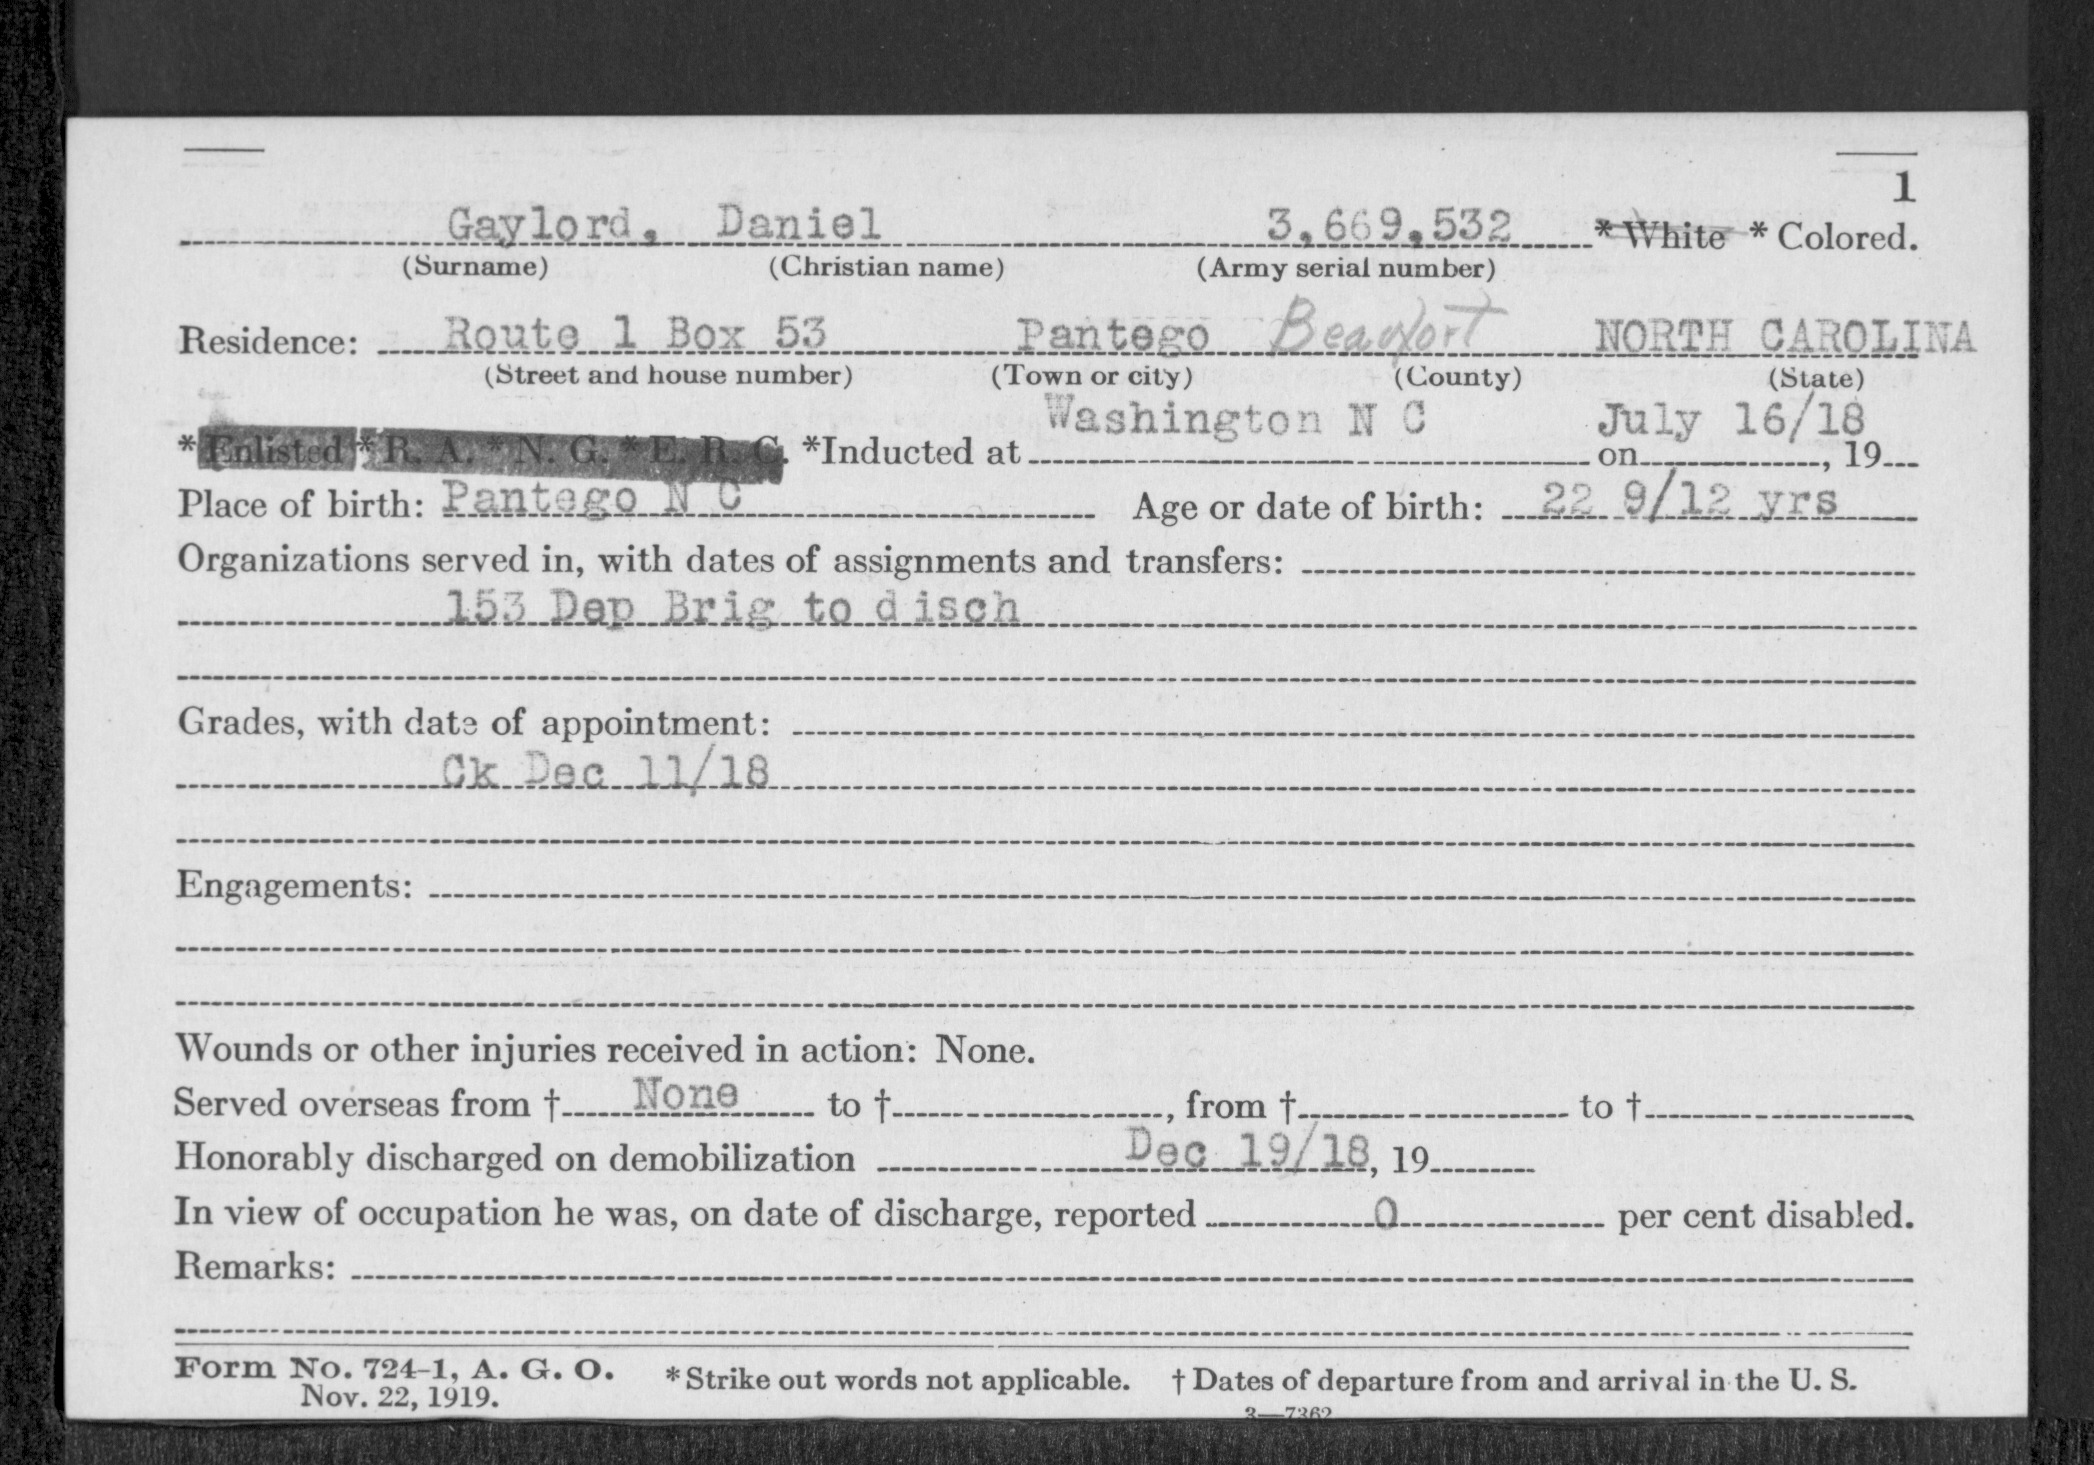 1
Gaylord, Daniel 3,669,532 * White * Colored.
(Surname) (Christian name) (Army serial number)
Residence: Route 1 Box 53 Pantego Beaufort NORTH CAROLINA
(Street and house number) (Town or city) (County) (State)
Washington N C July 16/18
* Enlisted * R. A. * N. G. * E. R. C. *Inducted at on , 19
Place of birth: Pantego N C Age or date of birth: 22 9/12 yrs
Organizations served in, with dates of assignments and transfers:
153 Dep Brig to disch
Grades, with date of appointment:
Ck Dec 11/18
Engagements:
Wounds or other injuries received in action: None.
Served overseas from † None to † , from † to †
Honorably discharged on demobilization Dec 19/18, 19
In view of occupation he was, on date of discharge, reported 0 per cent disabled.
Remarks:
Form No. 724-1, A. G. O. * Strike out words not applicable. † Dates of departure from and arrival in the U. S.
Nov. 22, 1919.
3—7362